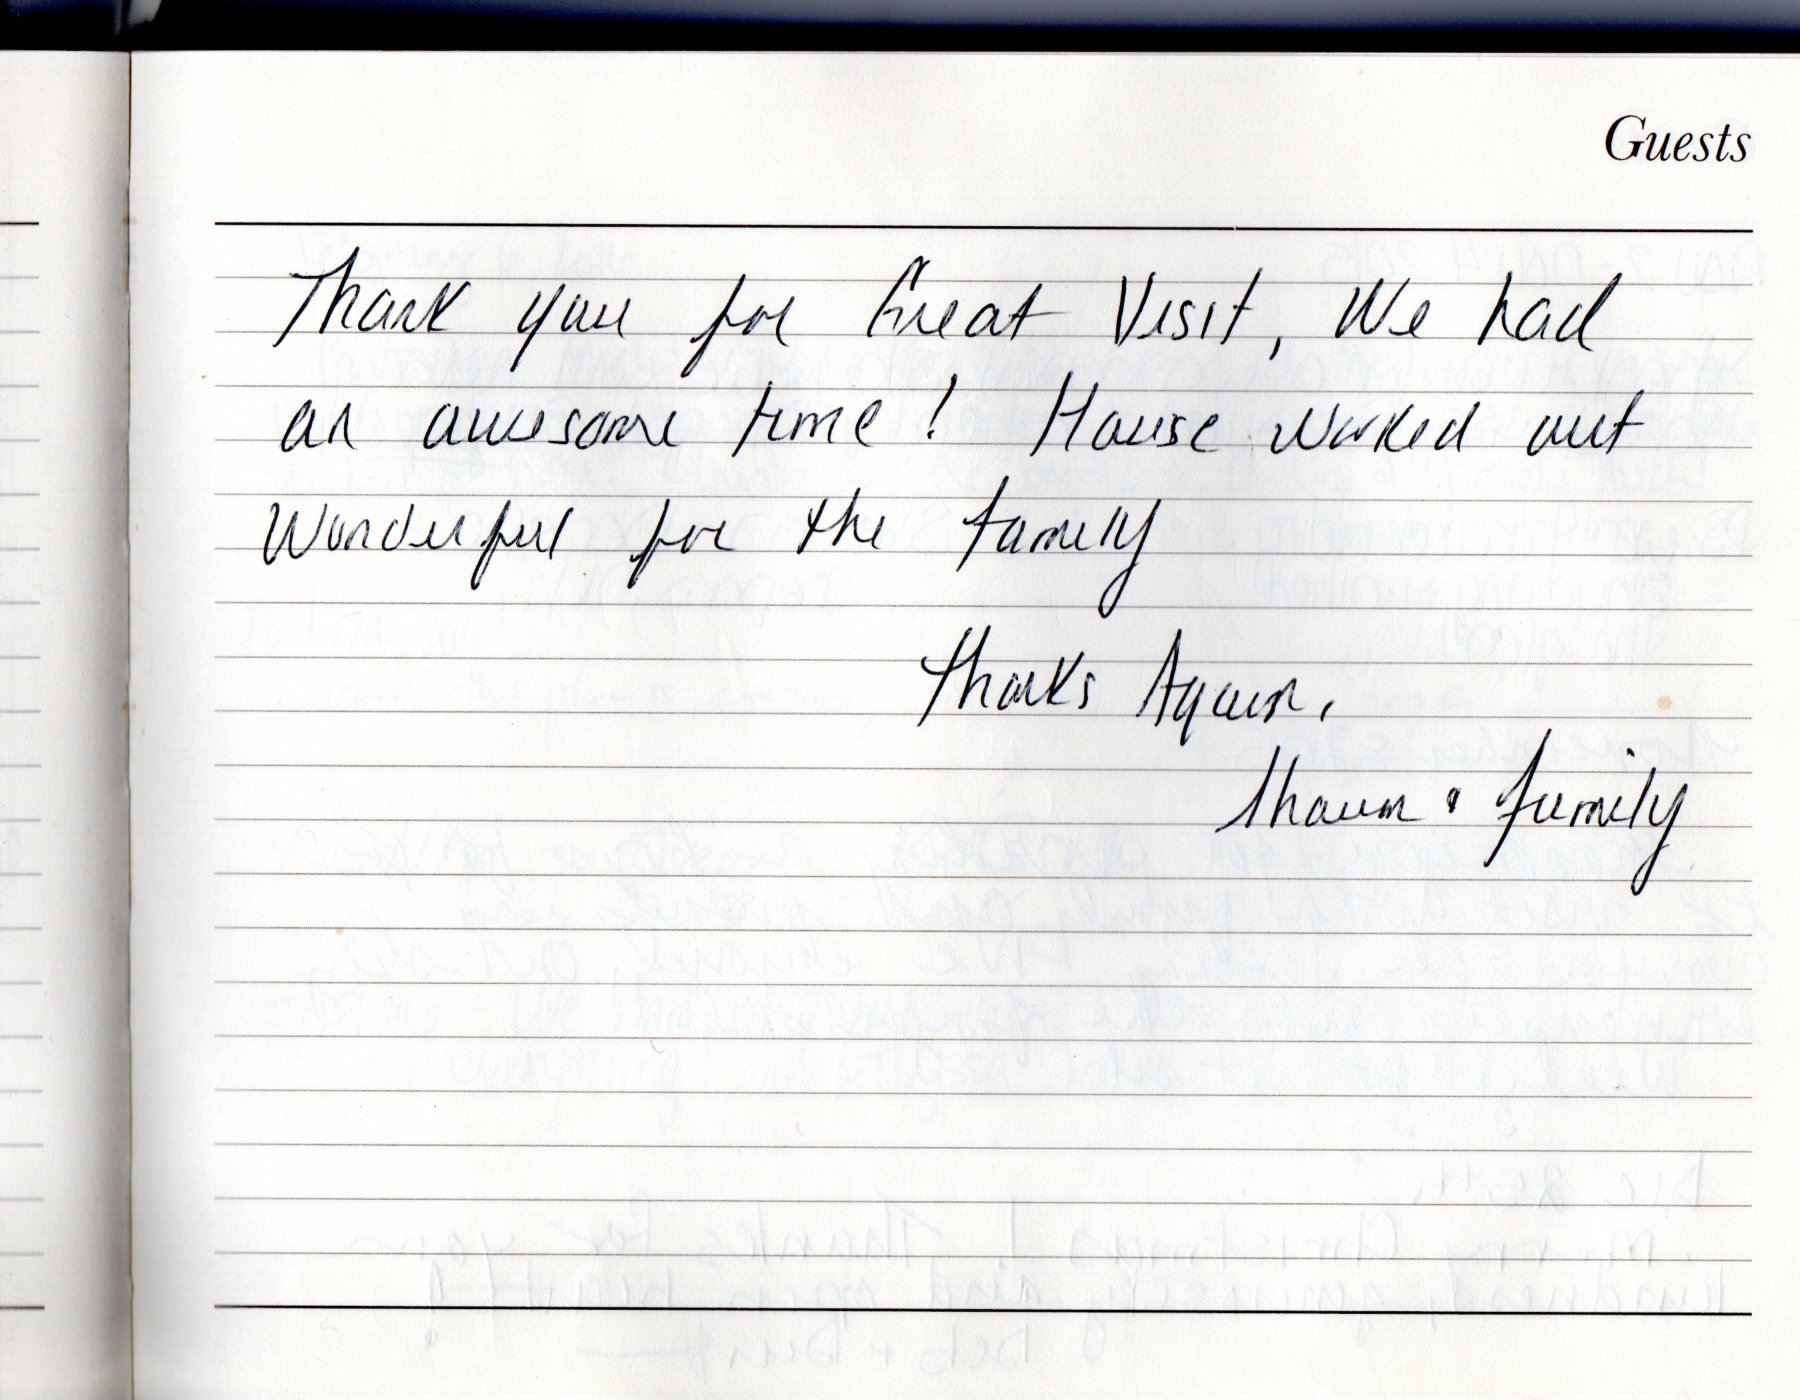 Guests
Thank you for Great Visit, We had
an awesome time! House worked out
Wonderful for the family
Thanks Again,
Shaun & family